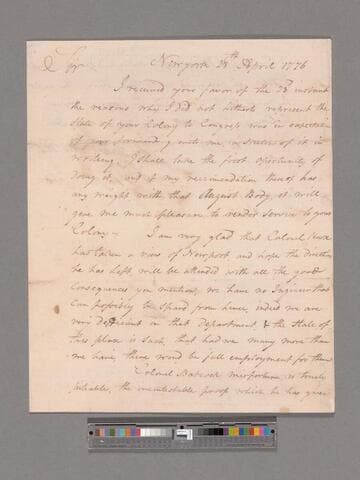 Sir New york 28th April 1776
I received your favor of the 23d instant
the reasons why I did not hitherto represent the
State of your Colony to Congress was in expectation
of your forwarding me a state of it in
writing. I shall take the first oportunity of
doing it, and if my recomendation thereof has
any weight with that August Body it will
give me much pleasure to render service to your
Colony — I am very glad that Colonel
has taken a view of Newport and hope the direction
he has left will be attended with all the good
consequences you mention, we have no Engineer that
can possibly be spared from hence, indeed we are
very deficient in that department, & the State of
this place is such, that had we many more than
we have, there would be full employment for them
Colonel Babcock misfortune is truly
the incontestable proof which he has given